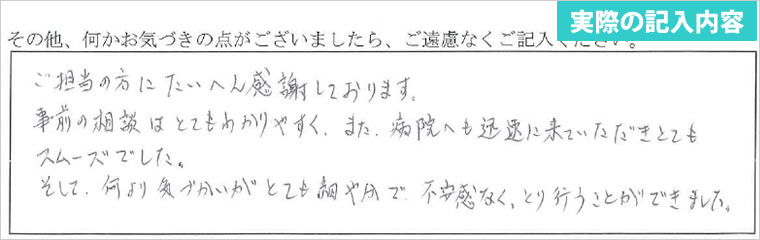 実際の記入内容
その他、何かお気づきの点がございましたら、ご遠慮なくご記入ください。
ご担当の方にたいへん感謝しております。
事前の相談はとてもわかりやすく、また、病院へも迅速に来ていただきとても
スムーズでした。
そして、何より気づかいがとても細やかで、不安感なく、とり行うことができました。